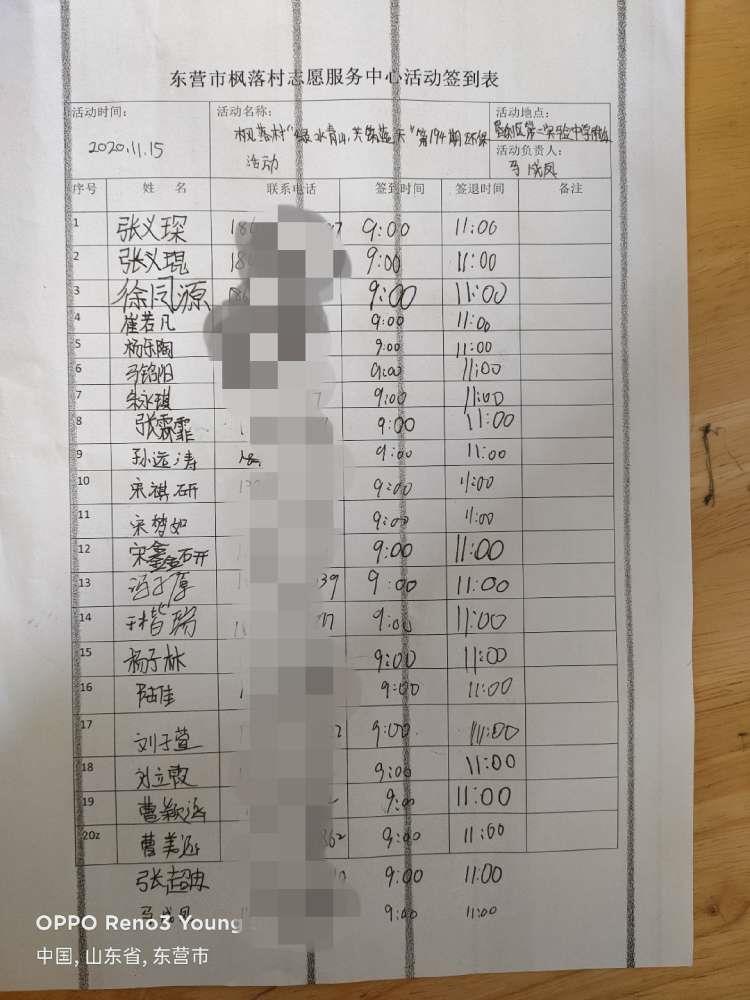 东营市枫落村志愿服务中心活动签到表
活动时间: 活动名称: 活动地点:
2020.11.15 枫落村"绿水青山,共筑蓝天"第194期环保活动
活动负责人:
马成凤
序号 姓 名 联系电话 签到时间 签退时间 备注
1 张义琛 186 9:00 11:00
2 张义琨 18 9:00 11:00
3 徐凤源 186 9:00 11:00
4 崔若凡 9:00 11:00
5 杨乐陶 9:00 11:00
6 马铭阳 9:00 11:00
7 朱永琪 9:00 11:00
8 张霖霏 9:00 11:00
9 孙远涛 9:00 11:00
10 宋祺研 9:00 11:00
11 宋梦如 9:00 11:00
12 宋鑫研 9:00 11:00
13 冯子厚 39 9:00 11:00
14 瑞 9:00 11:00
15 杨子林 9:00 11:00
16 陆佳 9:00 11:00
17 刘子萱 9:00 11:00
18 刘立霞 9:00 11:00
19 曹颖 9:00 11:00
20z 曹美 362 9:00 11:00
张超 9:00 11:00
马成凤 9:00 11:00
OPPO Reno3 Young
中国, 山东省, 东营市